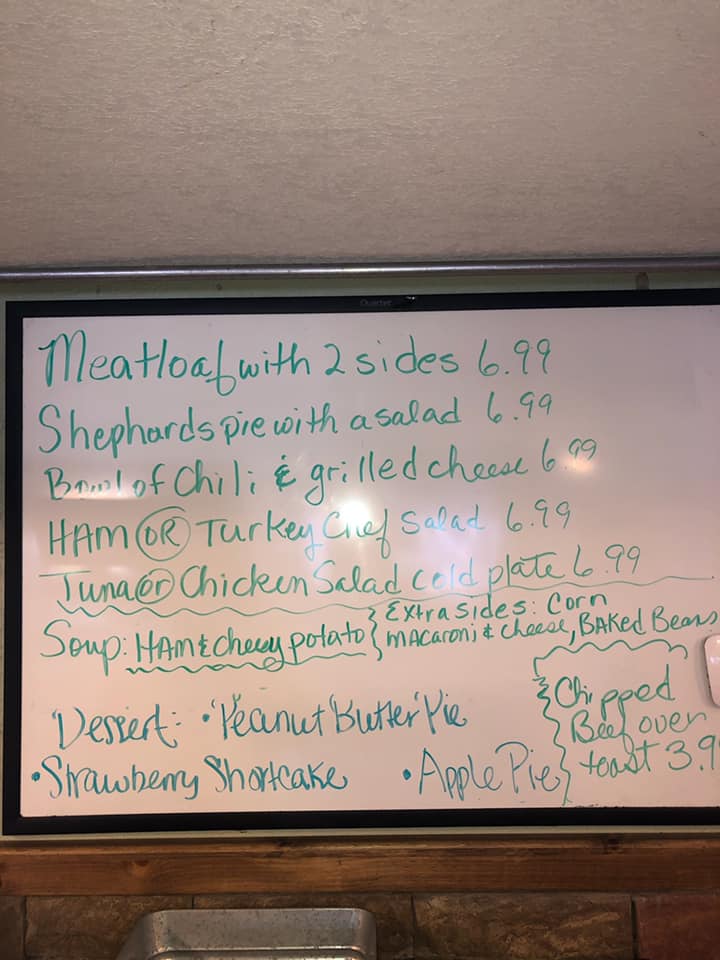 Quartet
Meatloaf with 2 sides 6.99
Shephards pie with a salad 6.99
Bowl of Chili & grilled cheese 6.99
HAM OR Turkey Chef Salad 6.99
Tuna or Chicken Salad cold plate 6.99
Soup: HAM & cheesy potato
Extra sides: Corn
macaroni & cheese, BAKed Beans
Dessert: • Peanut Butter Pie
• Strawberry Shortcake • Apple Pie
Chipped
Beef over
toast 3.9